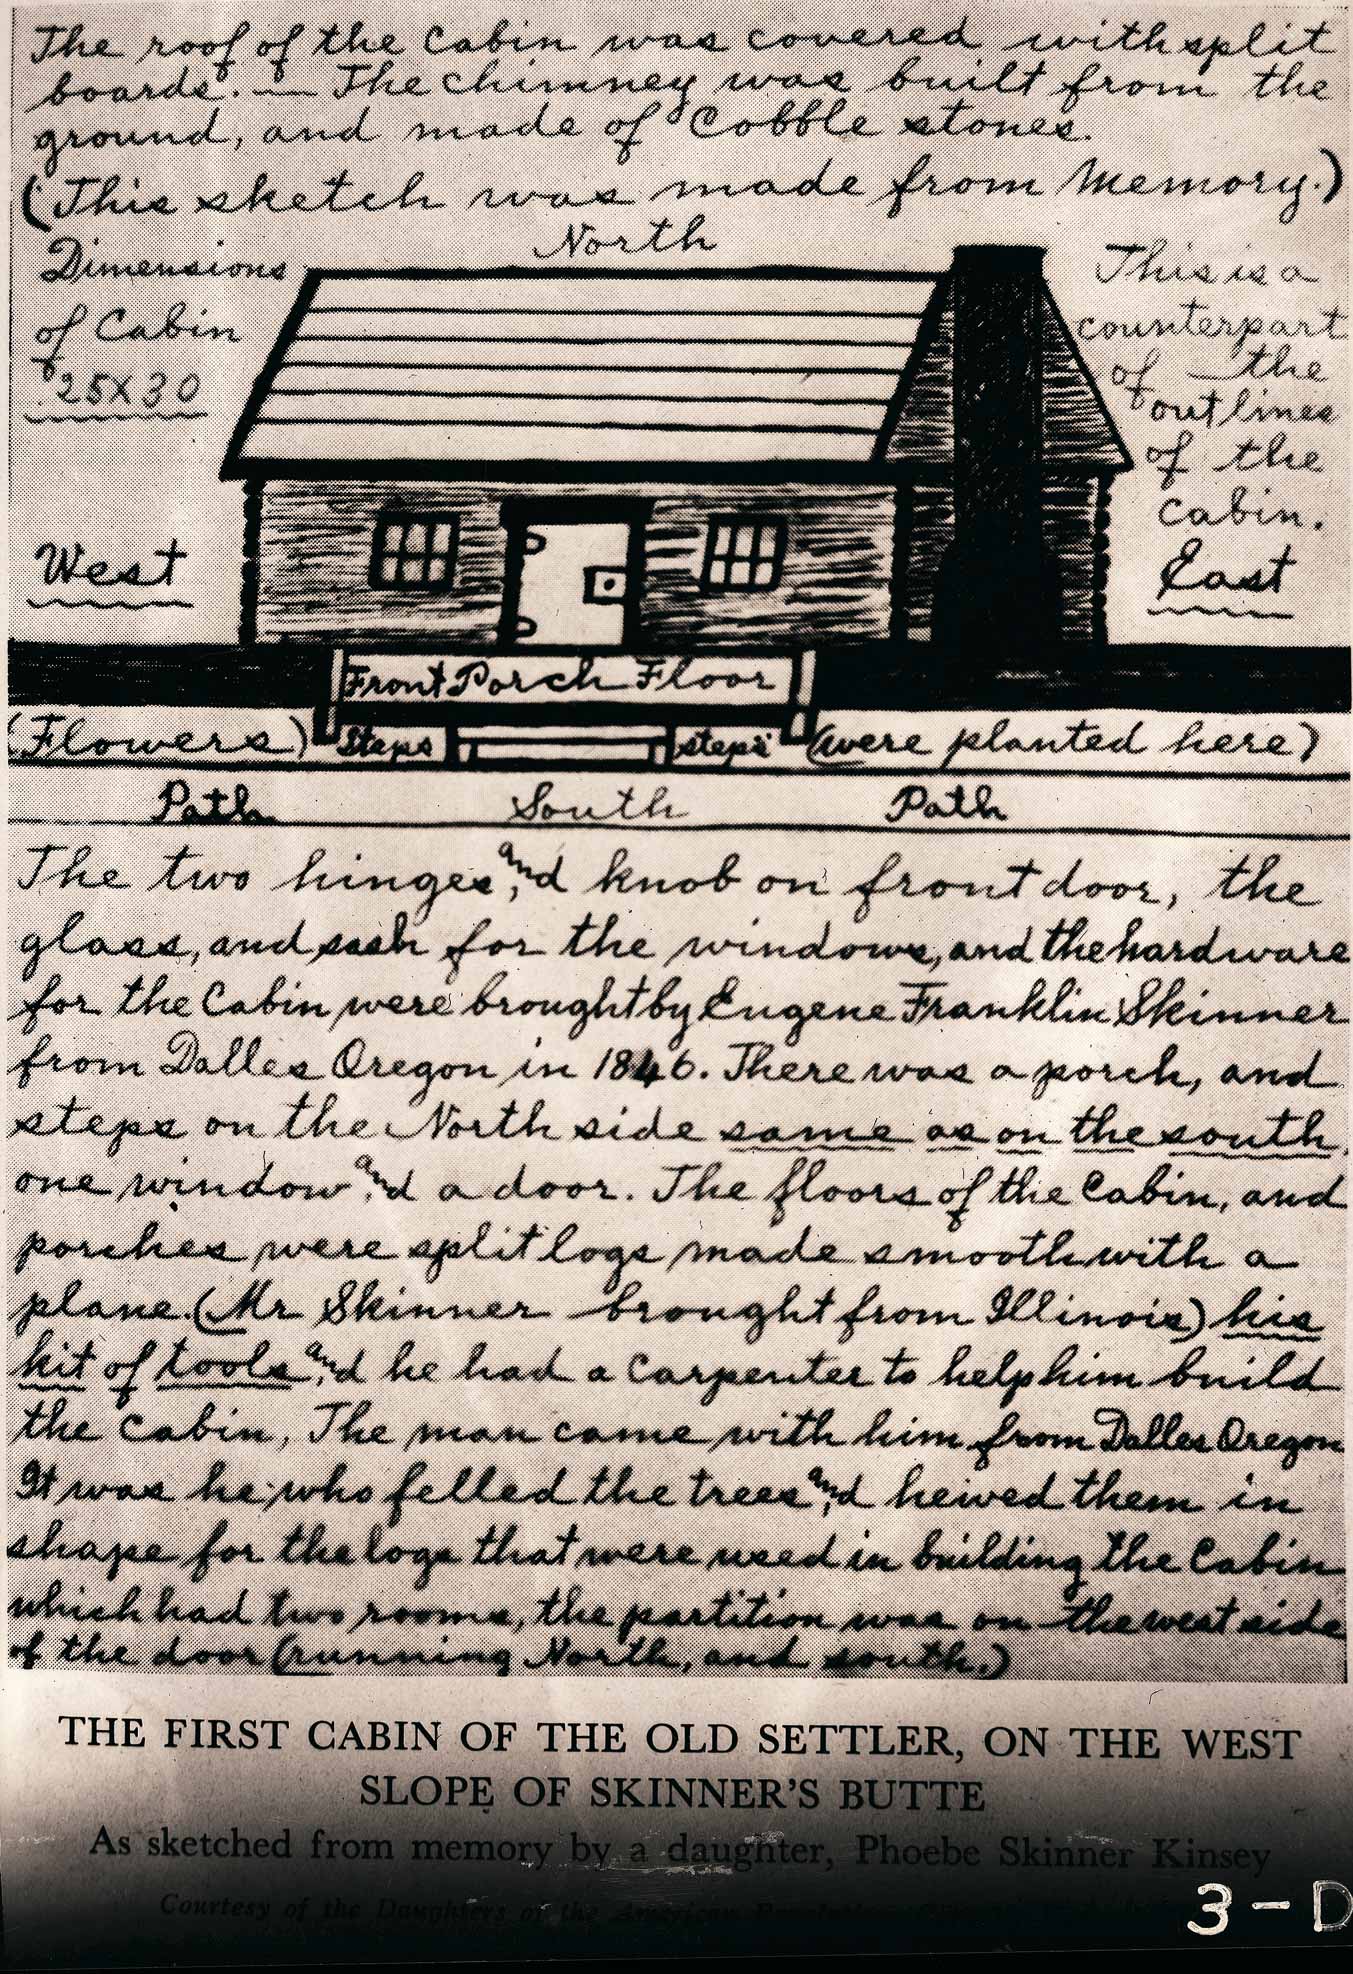 The roof of the Cabin was covered with split
boards. — The chimney was built from the
ground, and made of Cobble stones.
(This sketch was made from Memory.)
North
Dimensions
of Cabin
25X30
This is a
counterpart
of the
outlines
of the
cabin.
West
East
Front Porch Floor
(Flowers) Steps steps (were planted here)
Path South Path
The two hinges, and knob on front door, the
glass, and sash for the windows, and the hardware
for the Cabin were brought by Eugene Franklin Skinner
from Dalles Oregon in 1846. There was a porch, and
steps on the North side same as on the south,
one window and a door. The floors of the Cabin, and
porches were split logs made smooth with a
plane. (Mr Skinner brought from Illinois) his
kit of tools and he had a Carpenter to help him build
the Cabin, The man came with him from Dalles Oregon
It was he who felled the trees and heiwed them in
shape for the logs that were used in building the Cabin
which had two rooms, the partition was on the west side
of the door (running North, and south.)
THE FIRST CABIN OF THE OLD SETTLER, ON THE WEST
SLOPE OF SKINNER'S BUTTE
As sketched from memory by a daughter, Phoebe Skinner Kinsey
Courtesy of the Daughters of the American
3-D